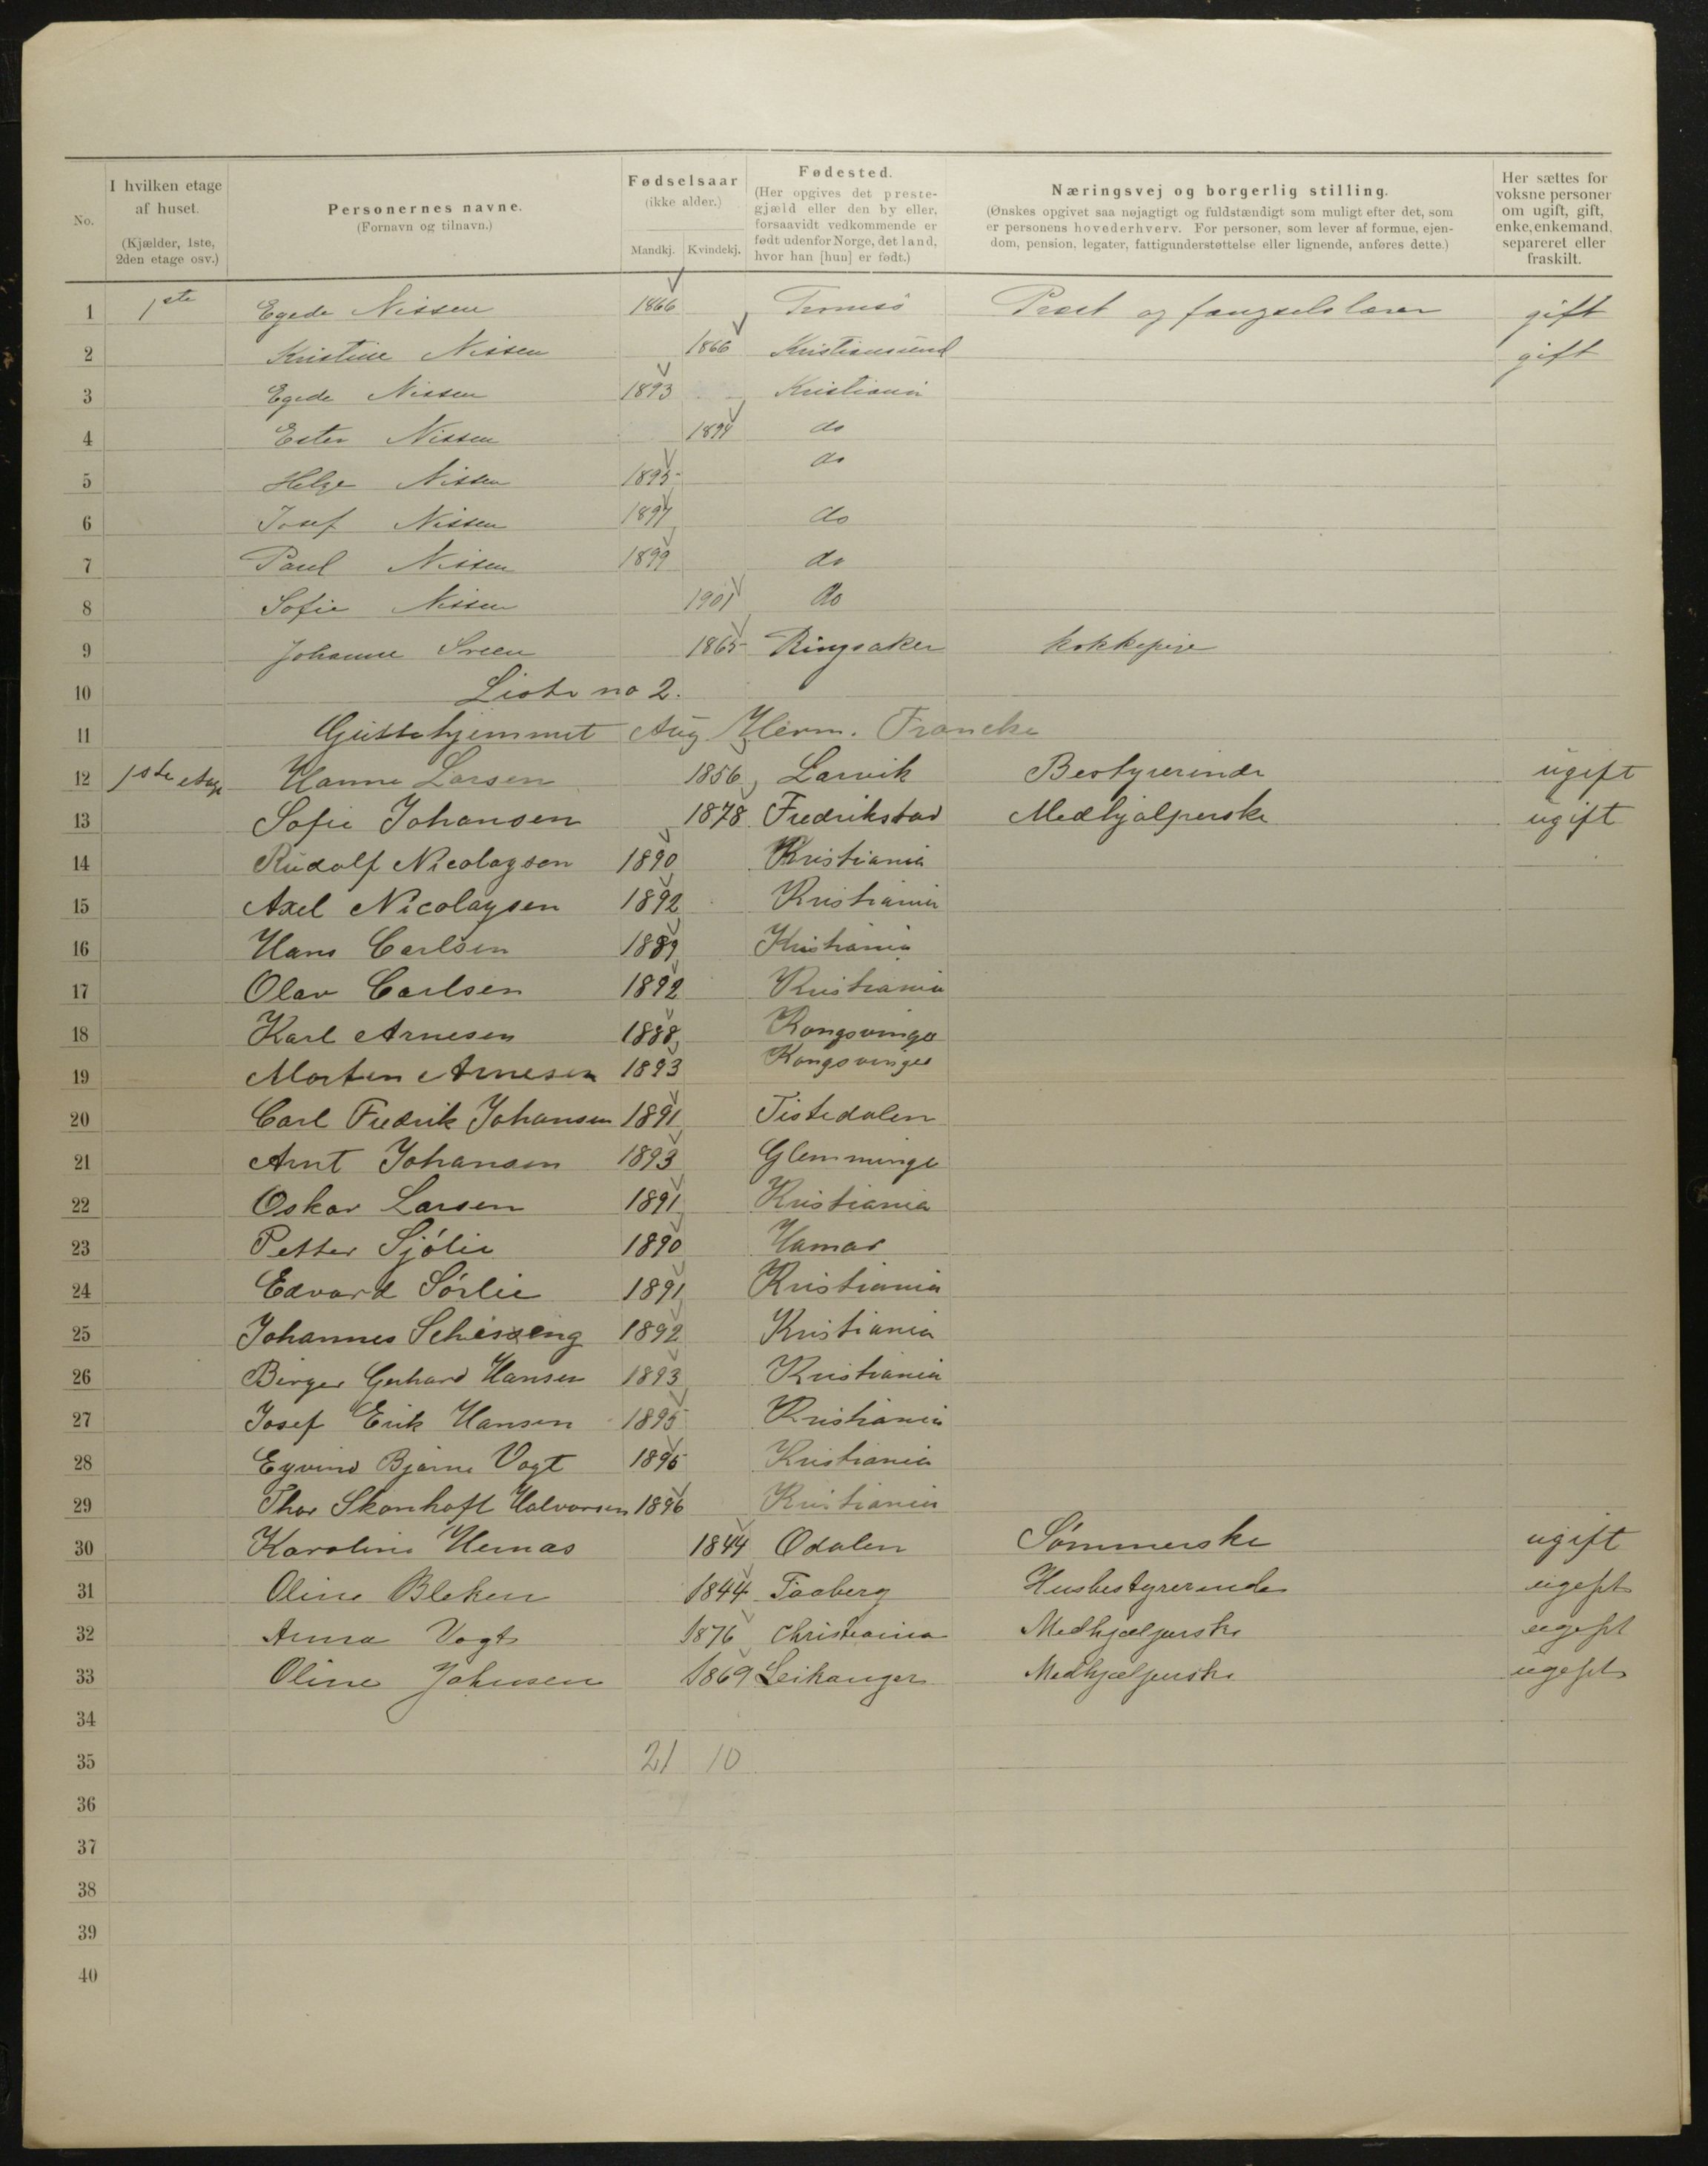 No. | I hvilken etage af huset. (Kjælder, 1ste, 2den etage osv.) | Personernes navne. (Fornavn og tilnavn.) | Fødselsaar (ikke alder.) Mandkj. Kvindekj. | Fødested. (Her opgives det prestegjæld eller den by eller, forsaavidt vedkommende er født udenfor Norge, det land, hvor han [hun] er født.) | Næringsvej og borgerlig stilling. (Ønskes opgivet saa nøjagtigt og fuldstændigt som muligt efter det, som er personens hovederhverv. For personer, som lever af formue, ejendom, pension, legater, fattigunderstøttelse eller lignende, anføres dette.) | Her sættes for voksne personer om ugift, gift, enke, enkemand, separeret eller fraskilt.
1 1ste Egede Nissen 1866 Tromsø Præst og fængselslærer gift
2 Kristine Nissen 1866 Kristiansund gift
3 Egede Nissen 1893 Kristiania
4 Ester Nissen 1894 do
5 Helge Nissen 1895 do
6 Josef Nissen 1897 do
7 Paul Nissen 1899 do
8 Sofie Nissen 1901 do
9 Johanne Sveen 1865 Ringsaker kokkepige
10 Liste no 2.
11 Guttehjemmet Aug Herm. Francke
12 1ste etage Hanna Larsen 1856 Larvik Bestyrerinde ugift
13 Sofie Johansen 1878 Fredrikstad Medhjælperske ugift
14 Rudolf Nicolaysen 1890 Kristiania
15 Axel Nicolaysen 1892 Kristiania
16 Hans Carlsen 1889 Kristiania
17 Olav Carlsen 1892 Kristiania
18 Karl Arnesen 1888 Kongsvinger
19 Morten Arnesen 1893 Kongsvinger
20 Carl Fredrik Johansen 1891 Tistedalen
21 Arnt Johansen 1893 Glemminge
22 Oskar Larsen 1891 Kristiania
23 Petter Sjølie 1890 Hamar
24 Edvard Sørlie 1891 Kristiania
25 Johannes 1892 Kristiania
26 Birger Gerhard Hansen 1893 Kristiania
27 Josef Erik Hansen 1895 Kristiania
28 Eyvind Bjarne Vogt 1895 Kristiania
29 Thor Skonhoft Halvorsen 1896 Kristiania
30 Karoline Hernas 1844 Odalen Sømmerske ugift
31 Oline Bleken 1844 Faaberg Husbestyrerinde ugift
32 Anna Vogt 1876 Christiania Medhjælperske ugift
33 Oline Johnsen 1869 Leikanger Medhjælperske ugift
34
35 21 10
36
37
38
39
40